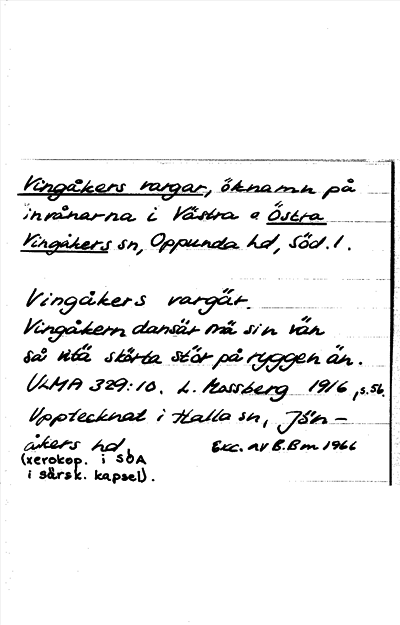 Vingåkers vargar, öknamn på
invånarna i Västra o Östra
Vingåkers sn, Oppunda hd, Söd.l.
Vingåkers vargär.
Vingåkern dansär mä sin vän
så stärta stör på ryggen än.
ULMA 329:10. L. Mossberg 1916, s.56.
Upptecknat i Halla sn, Jön-
åkers hd.
Exc. av B.Bm 1966
(xerokop. i SOA
i särsk. kapsel).